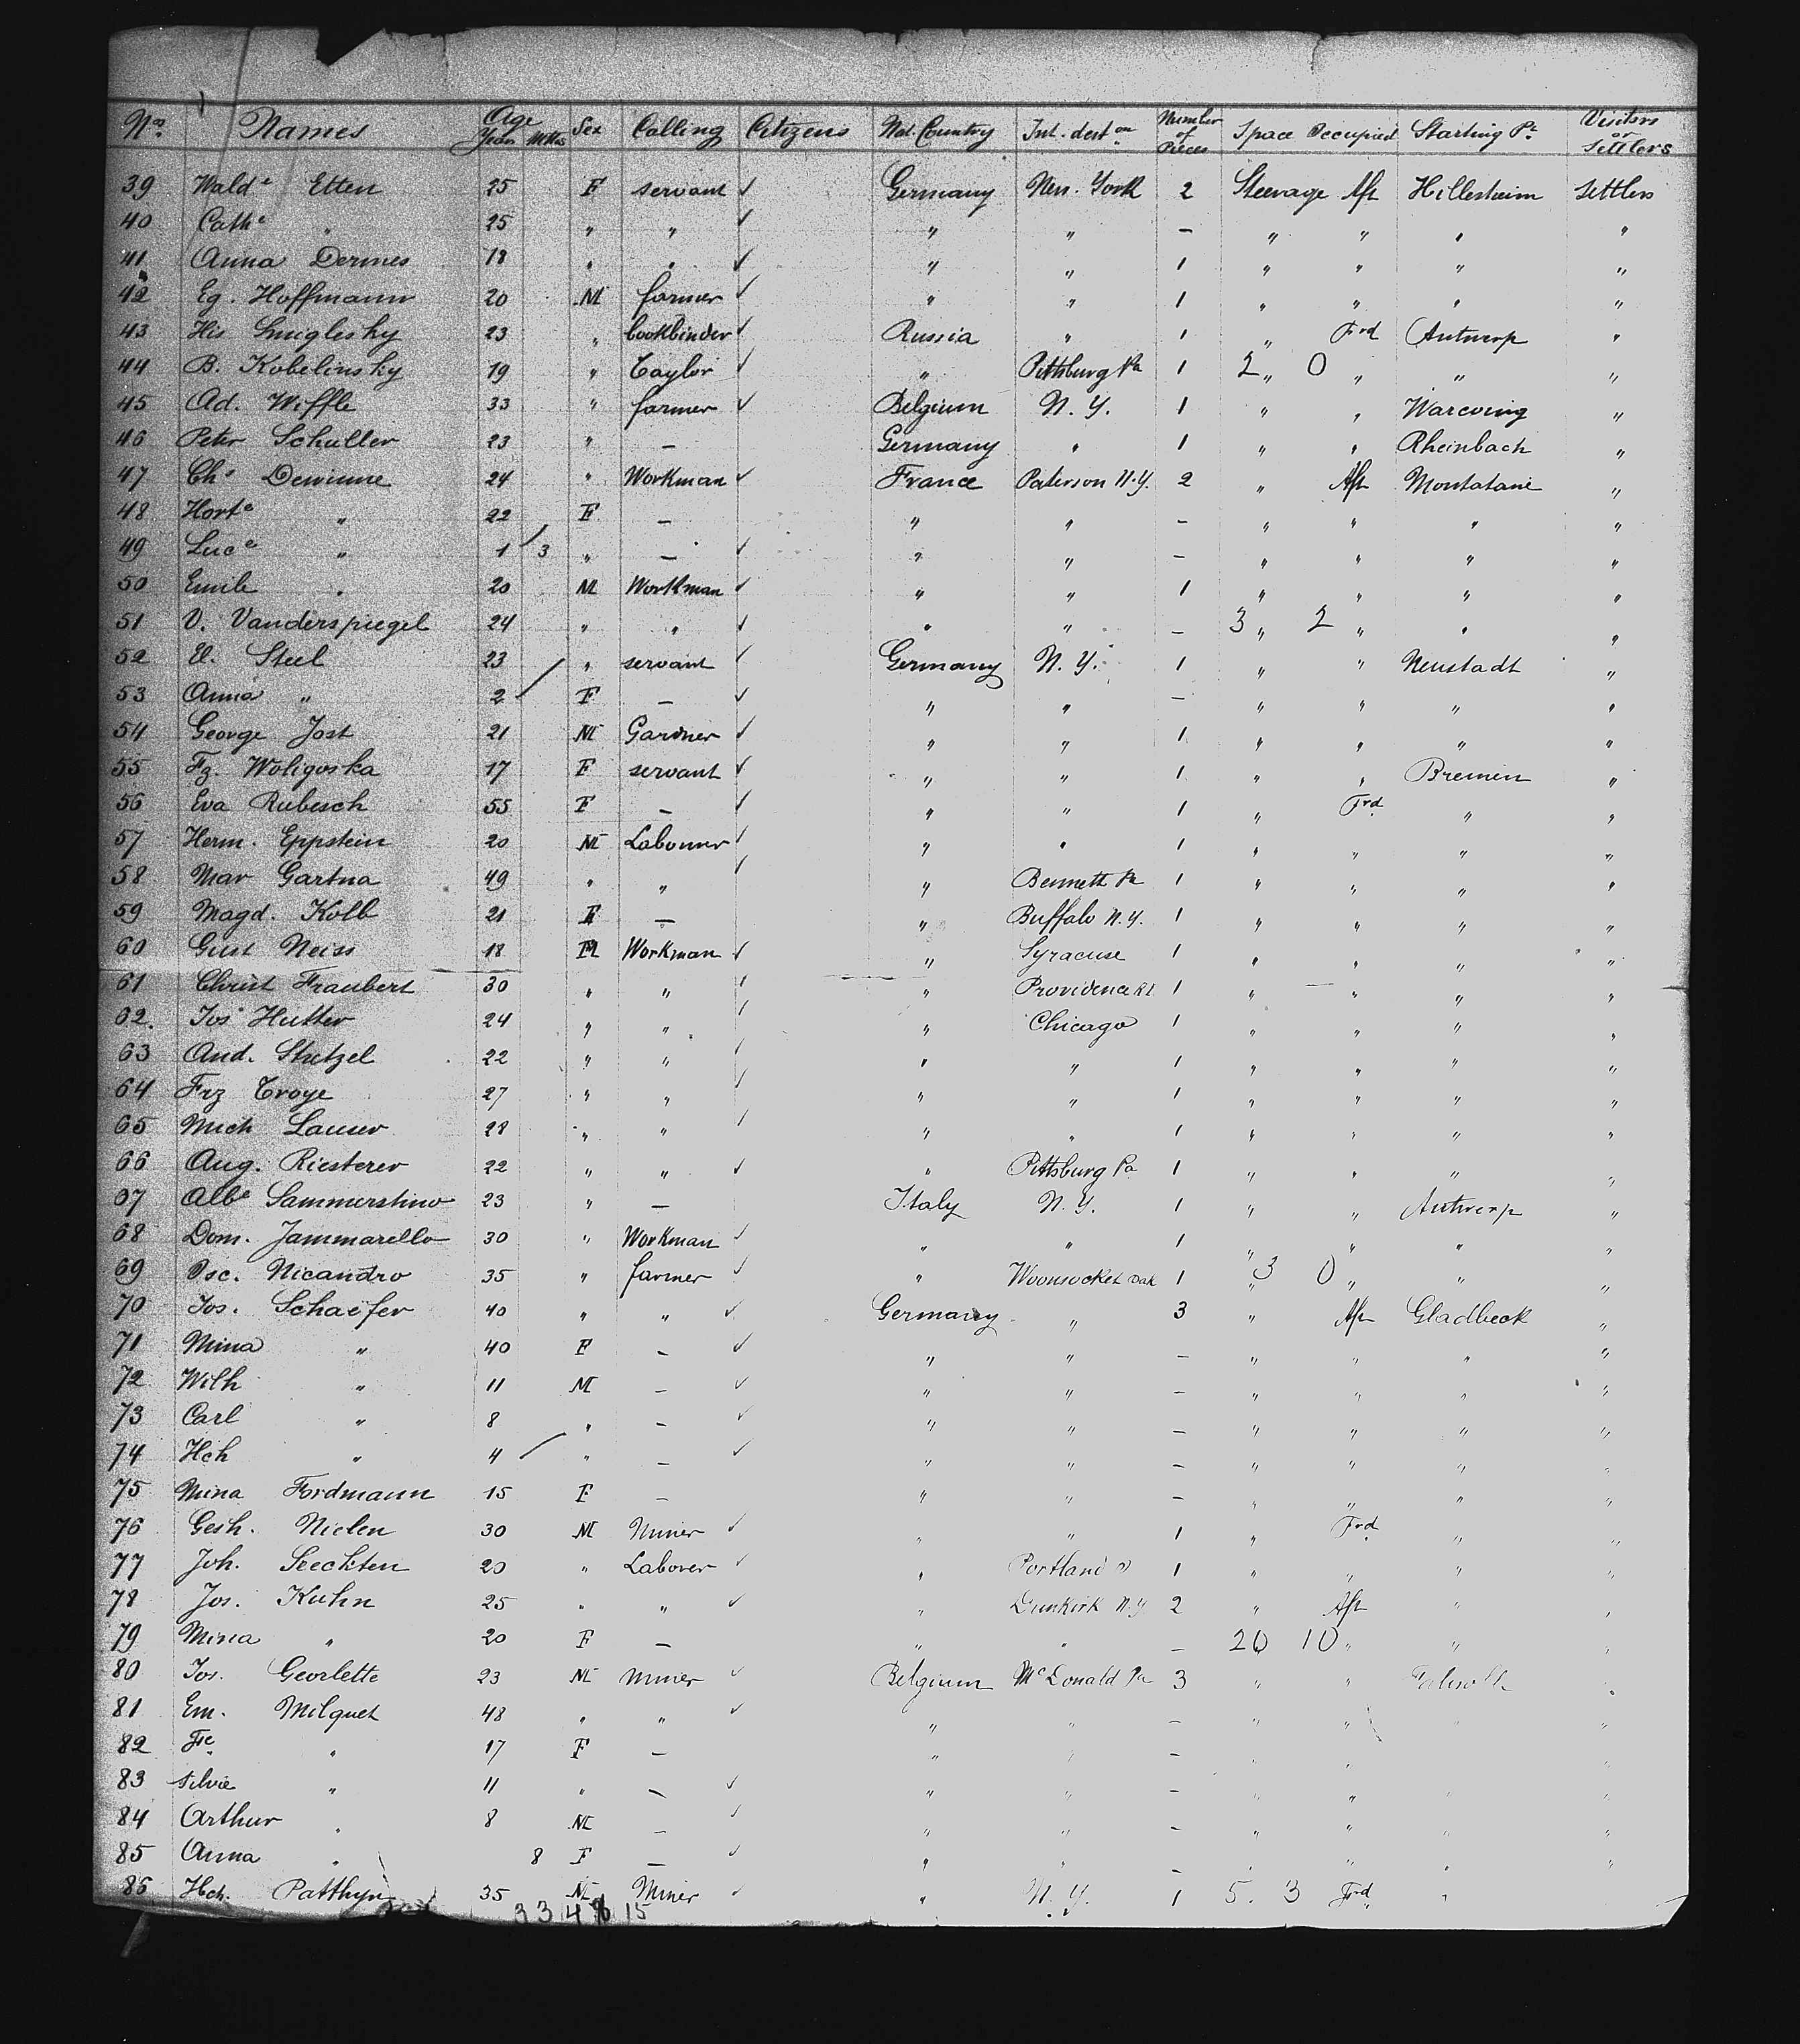 Nos. Names Age Years Mths Sex Calling Citizens Nat. Country Int. dest.on Number of Pieces Space Occupied Starting Pt. Visitors or Settlers
39 Wald.e Etten 25 F servant ✓ Germany New. York 2 Steerage Aft Hillesheim Settlers
40 Cath.e " 25 " " ✓ " " — " " " "
41 Anna Dermes 18 " " ✓ " " 1 " " " "
42 Eg. Hoffmann 20 M farmer ✓ " " 1 " " " "
43 His 23 " bookbinder ✓ Russia " 1 " Frd Antwerp "
44 B. Kobelinsky 19 " Taylor ✓ " Pittsburg Pa 1 2 " 0 " " "
45 Ad. Wiffle 33 " farmer ✓ Belgium N. Y. 1 " " Warcoing "
46 Peter Schuller 23 " — Germany " 1 " " Rheinbach "
47 Chs Dewinne 24 " Workman ✓ France Paterson N.Y. 2 " Aft "
48 Horte " 22 F — " " — " " " "
49 Luce " 1 3 " — ✓ " " — " " " "
50 Emile " 20 M Workman ✓ " " 1 " " " "
51 V. Vanderspiegel 24 " " ✓ " " — 3 " 2 " " "
52 El. Steel 23 " servant ✓ Germany N. Y. 1 " " Neustadt "
53 Anna " 2 F — ✓ " " — " " " "
54 George Jost 21 M Gardner ✓ " " 1 " " " "
55 Fz. Woligoska 17 F servant ✓ " " 1 " " Bremen "
56 Eva Rubesch 55 F — ✓ " " 1 " Frd " "
57 Herm. Eppstein 20 M Labourer ✓ " " 1 " " " "
58 Mar Gartna 49 " " ✓ " Bennett Pa 1 " " " "
59 Magd. Kolb 21 F — " Buffalo N.Y. 1 " " " "
60 Gust Neiss 18 M Workman ✓ " Syracuse 1 " " " "
61 Christ Fraubert 30 " " ✓ " Providence RI 1 " " " "
62. Jos Hutter 24 " " ✓ " Chicago 1 " " " "
63 And. Stutzel 22 " " ✓ " " 1 " " " "
64 Frz Troye 27 " " ✓ " " 1 " " " "
65 Mich Lauser 28 " " ✓ " " 1 " " " "
66 Aug. Riesterer 22 " " ✓ " Pittsburg Pa 1 " " " "
67 Albe Sammerstino 23 " — Italy N. Y. 1 " " Antwerp "
68 Dom. Jammarello 30 " Workman ✓ " " 1 " " " "
69 Psc. Nicandro 35 " farmer ✓ " Woonsocket Dak 1 " 3 0 " " "
70 Jos. Schaefer 40 " " ✓ Germany " 3 " Aft Gladbeck "
71 Mina " 40 F — ✓ " " — " " " "
72 Wilh " 11 M — ✓ " " — " " " "
73 Carl " 8 " — ✓ " " — " " " "
74 Hch " 4 " — ✓ " " — " " " "
75 Mina Fordmann 15 F — " " — " " " "
76 Gesh. Nielen 30 M Miner ✓ " " 1 " Frd " "
77 Joh. Seeckten 20 " Laborer ✓ " Portland 1 " " " "
78 Jos. Kuhn 25 " " ✓ " Dunkirk N.Y 2 " Aft " "
79 Mina " 20 F — " " — 20 10 " " "
80 Jos. Georlette 23 M miner ✓ Belgium McDonald Pa 3 " " "
81 Em. Milquet 48 " " ✓ " " — " " " "
82 Fe " 17 F — " " — " " "
83 Silvie " 11 " — ✓ " " — " " "
84 Arthur " 8 M — ✓ " " — " " " "
85 Anna " 8 F — ✓ " " — " " " "
86 Hch. Patthyn 35 M Miner ✓ " N. Y. 1 5. 3 Frd "
15